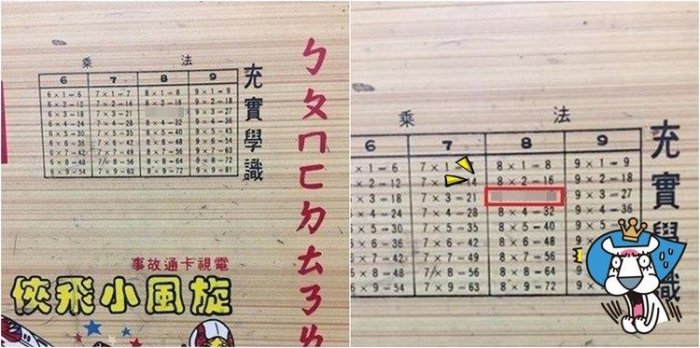 乘 法
6 7 8 9
6×1-6 7×1-7 8×1-8 9×1-9
6×2-12 7×2-14 8×2-16 9×2-18
6×3-18 7×3-21 9×3-27
6×4-24 7×4-28 8×4-32 9×4-36
6×5-30 7×5-35 8×5-40 9×5-45
6×6-36 7×6-42 8×6-48 9×6-54
6×7-42 7×7-49 8×7-56 9×7-63
6×8-48 7×8-56 8×8-64 9×8-72
6×9-54 7×9-63 8×9-72 9×9-81
充實學識
ㄅㄆㄇㄈㄉㄊㄋㄌ
事故通卡視電
俠飛小風旋
乘 法
6 7 8 9
×1-6 7×1 8×1-8 9×1-9
×2-12 7×2-14 8×2-16 9×2-18
×3-18 7×3-21 9×3-27
×4-24 7×4-28 8×4-32 9×4-36
×5-30 7×5-35 8×5-40 9×5
×6-36 7×6-42 8×6-48 9×6
×7-42 7×7-49 8×7-56 9×
×8-48 7×8-56 8×8-64 9×
×9-54 7×9-63 8×9-72 9×
充實學識